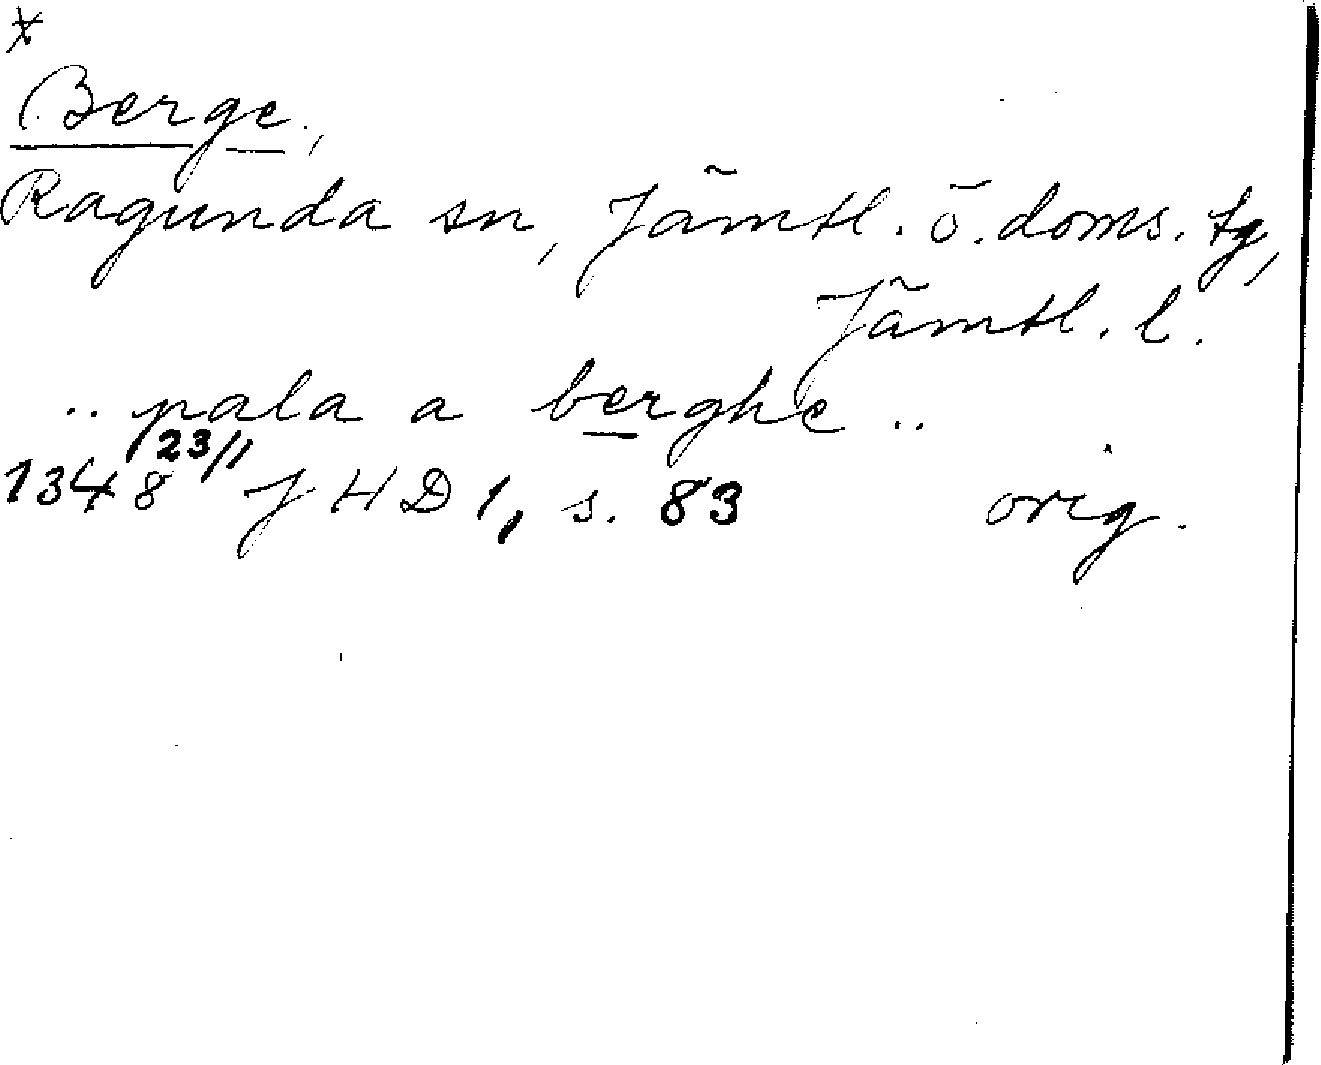 x
Berge,
Ragunda sn, Jämtl. ö. doms. tg,
Jämtl. l.
.. pala a berghe ..
1348 23/1 JHD 1, s. 83 orig.